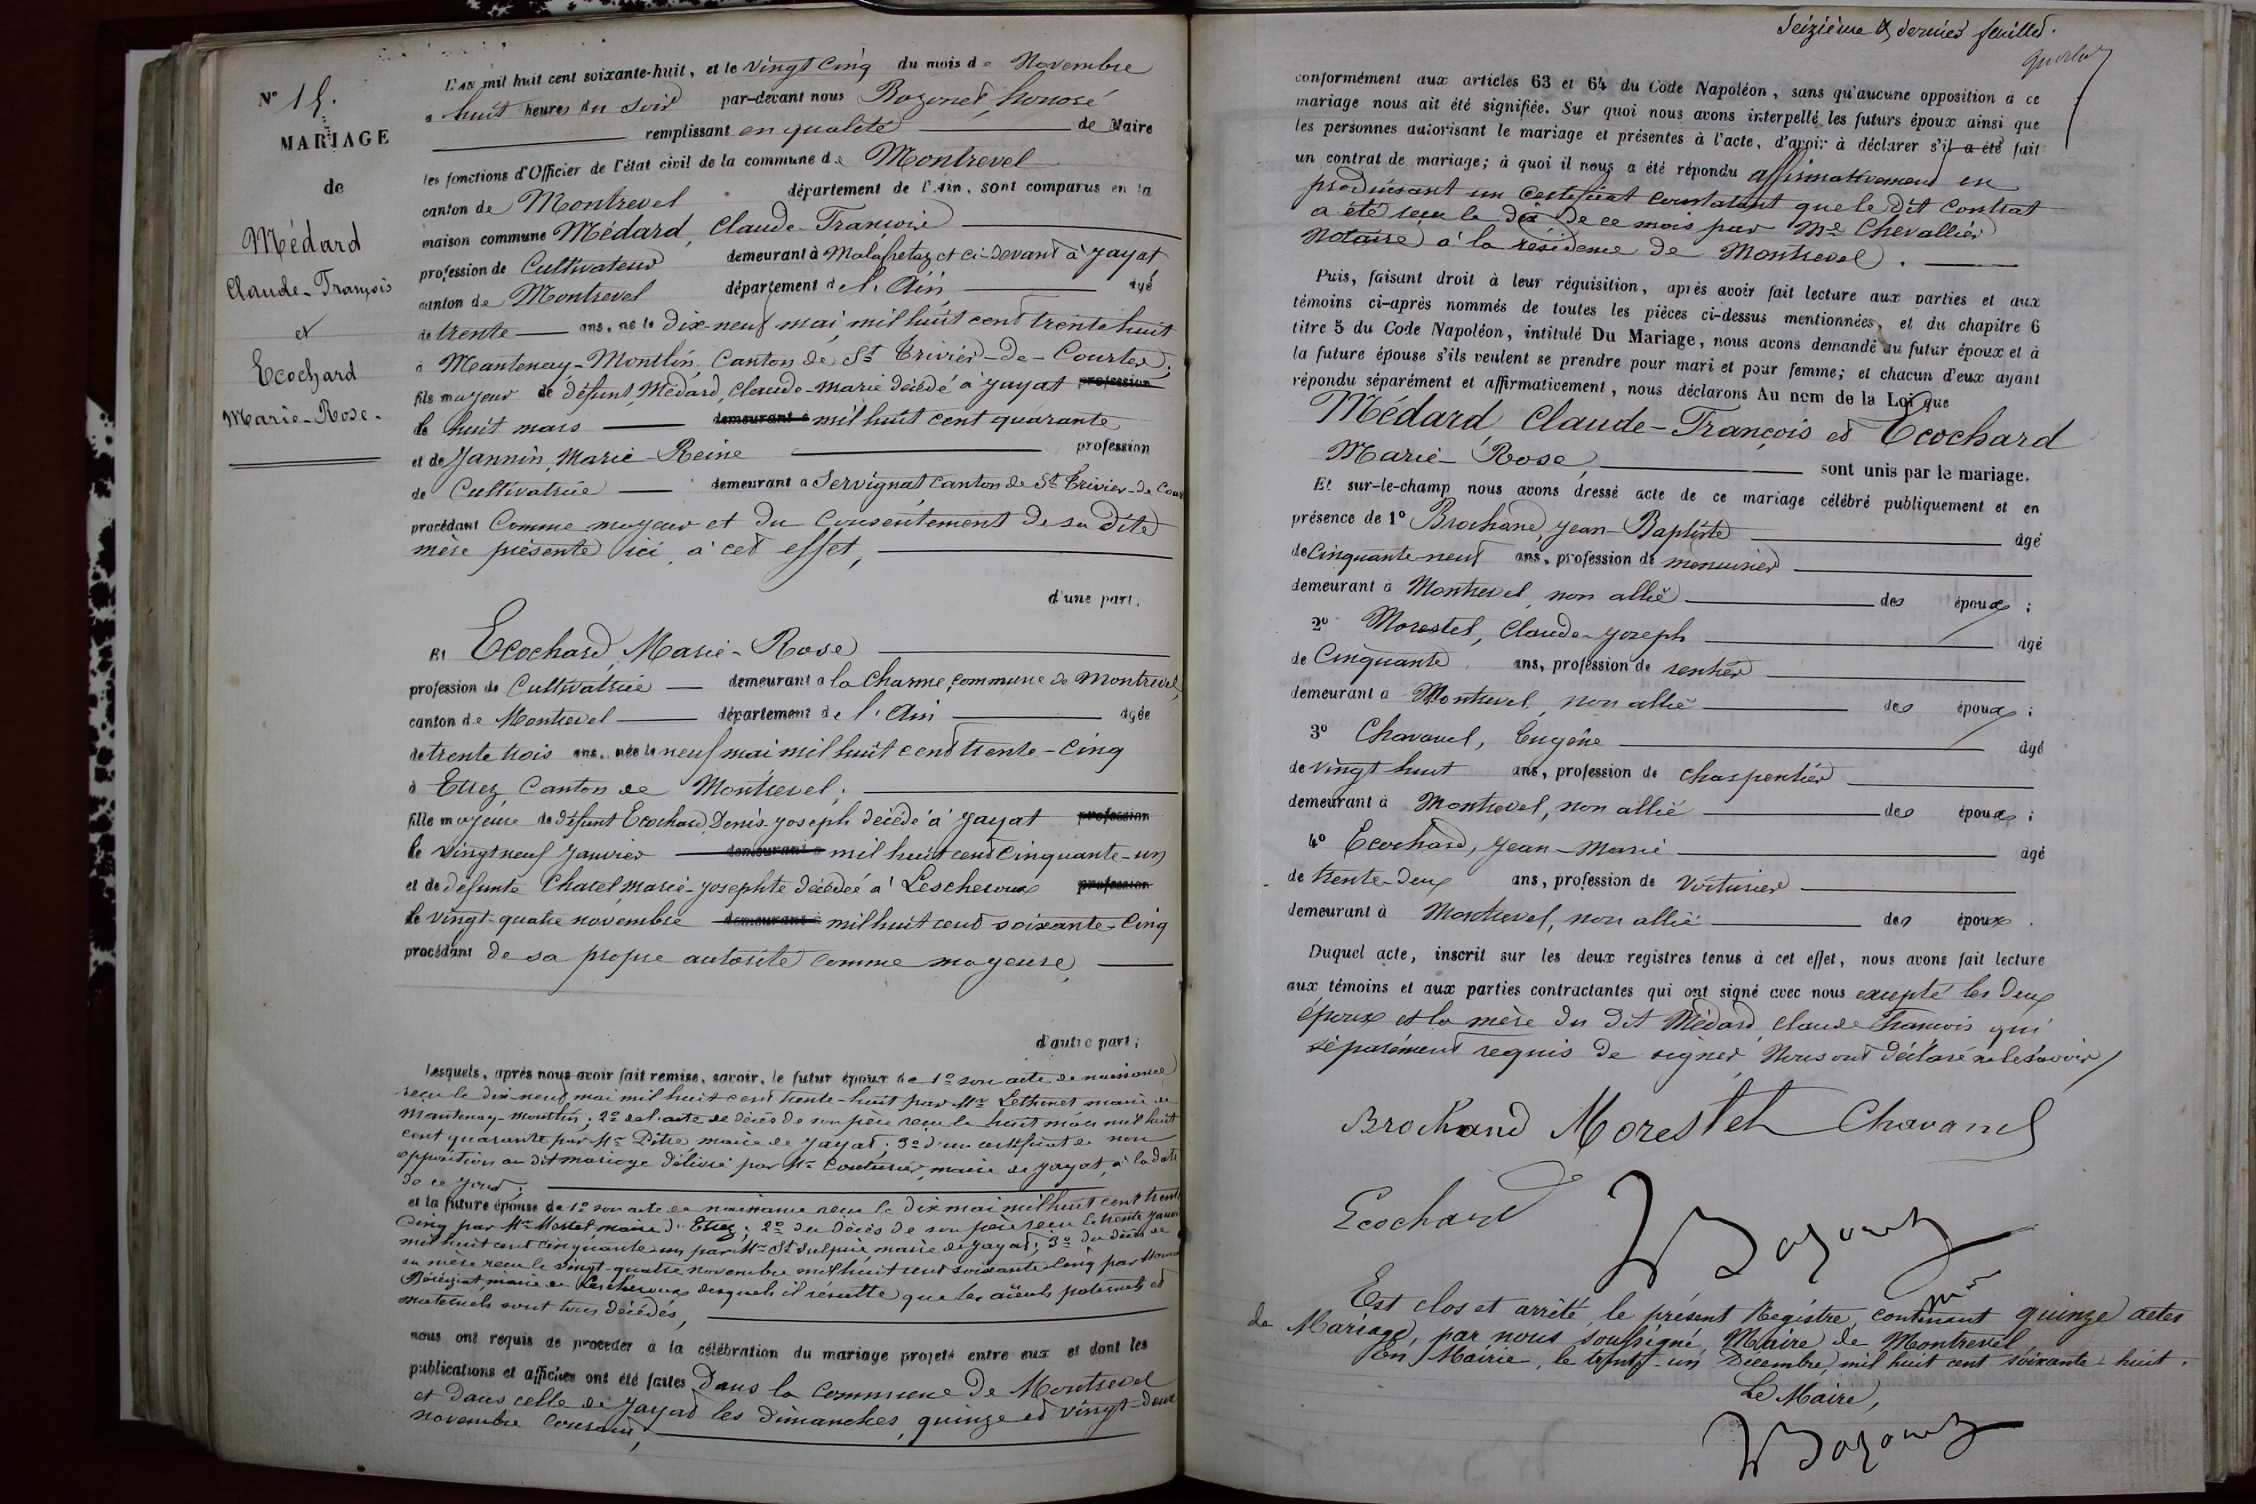 N° 15.
MARIAGE
de
Médard
Claude-François
et
Ecochard
Marie-Rose.
L'an mil huit cent soixante-huit, et le vingt cinq du mois de Novembre
à huit heures du soir par-devant nous Bozonet, honoré
remplissant en qualité de Maire
les fonctions d'Officier de l'état civil de la commune de Montrevel
canton de Montrevel département de l'Ain, sont comparus en la
maison commune Médard, Claude-François
profession de Cultivateur demeurant à Malafretaz et ci-devant à Jayat,
canton de Montrevel département de l'Ain âgé
de trente ans, né le dix-neuf mai mil huit cent trente huit
à Mantenay-Montlin, Canton de St Trivier-de-Courtes;
fils majeur de défunt Médard, Claude-Marie décédé à Jayat profession
le huit mars demeurant à mil huit cent quarante
et de Jannin, Marie-Reine profession
de Cultivatrice demeurant à Servignat canton de St Trivier-de Cour
procédant Comme majeur et du Consentement de sa dite
mère présente ici à cet effet,
d'une part,
Et Ecochard, Marie-Rose
profession de Cultivatrice demeurant à la Charme, commune de Montrevel,
canton de Montrevel département de l'Ain âgée
de trente trois ans, née le neuf mai mil huit cent trente-cinq
à Etrez, Canton de Montrevel;
fille majeure de défunt Ecochard, Denis Joseph décédé à Jayat profession
le vingt neuf Janvier demeurant à mil huit cent cinquante-un
et de défunte Chatel, Marie-Josephte décédée à Lescheroux profession
le vingt-quatre novembre demeurant à mil huit cent soixante-cinq
procédant de sa propre autorité comme majeure,
d'autre part;
Lesquels, après nous avoir fait remise, savoir, le futur époux de 1° son acte de naissance
reçu le dix-neuf mai mil huit cent trente-huit par Mr maire de
Mantenay-Montlin; 2° de l'acte de décès de son père reçu le huit mars mil huit
cent quarante par Mr Pitre, maire de Jayat; 3° d'un certificat de non
opposition au dit mariage délivré par Mr Couturier, maire de Jayat, à la date
de ce jour;
et la future épouse de 1° son acte de naissance reçu le dix mai mil huit cent trente
cinq par Mr maire d'Etrez; 2° du décès de son père reçu le trente janv
mil huit cent cinquante-un par Mr St Sulpice, maire de Jayat; 3° du décès de
sa mère reçu le vingt-quatre novembre mil huit cent soixante-cinq par
maire de Lescheroux desquels il résulte que les aïeuls paternels et
maternels sont tous décédés,
nous ont requis de procéder à la célébration du mariage projeté entre eux et dont les
publications et affiches ont été faites dans la commune de Montrevel
et dans celle de Jayat les dimanches, quinze et vingt-deux
novembre courant,
Seizième & dernier feuillet.
conformément aux articles 63 et 64 du Code Napoléon, sans qu'aucune opposition à ce
mariage nous ait été signifiée. Sur quoi nous avons interpellé les futurs époux ainsi que
les personnes autorisant le mariage et présentes à l'acte, d'avoir à déclarer s'il a été fait
un contrat de mariage; à quoi il nous a été répondu affirmativement en
produisant un certificat constatant que le dit contrat
a été reçu le dix de ce mois par Me Chevallier
notaire à la résidence de Montrevel.
Puis, faisant droit à leur réquisition, après avoir fait lecture aux parties et aux
témoins ci-après nommés de toutes les pièces ci-dessus mentionnées, et du chapitre 6
titre 5 du Code Napoléon, intitulé Du Mariage, nous avons demandé au futur époux et à
la future épouse s'ils veulent se prendre pour mari et pour femme; et chacun d'eux ayant
répondu séparément et affirmativement, nous déclarons Au nom de la Loi que
Médard, Claude-François et Ecochard
Marie-Rose, sont unis par le mariage.
Et sur-le-champ nous avons dressé acte de ce mariage célébré publiquement et en
présence de 1° Brochand, Jean-Baptiste âgé
de Cinquante neuf ans, profession de menuisier
demeurant à Montrevel, non allié des époux;
2° Morestel, Claude-Joseph âgé
de Cinquante ans, profession de rentier
demeurant à Montrevel, non allié des époux;
3° Chavanel, Eugène âgé
de vingt huit ans, profession de charpentier
demeurant à Montrevel, non allié des époux;
4° Ecochard, Jean-Marie âgé
de trente-deux ans, profession de voiturier
demeurant à Montrevel, non allié des époux.
Duquel acte, inscrit sur les deux registres tenus à cet effet, nous avons fait lecture
aux témoins et aux parties contractantes qui ont signé avec nous excepté les deux
époux et la mère du dit Médard Claude François qui
séparément requis de signer, nous ont déclaré ne le savoir
Brochand Morestel Chavanel
Ecochard
H Bozonet
Est clos et arrêté, le présent Registre, contenant quinze actes
de Mariage, par nous soussigné, Maire de Montrevel
En Mairie, le trente-un Décembre, mil huit cent soixante-huit.
Le Maire,
H Bozonet